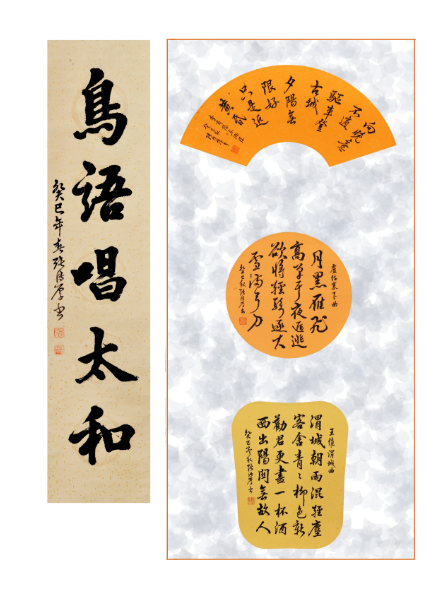 鳥語唱太和
癸巳年春
向晚意
不適
驅車登
古城
夕陽無
限好
只是近
黃昏
盧綸塞下曲
月黑雁飛
高單于夜遁逃
欲將輕騎逐大
雪滿弓刀
癸巳秋
王維渭城曲
渭城朝雨浥輕塵
客舍青々柳色新
勸君更盡一杯酒
西出陽關無故人